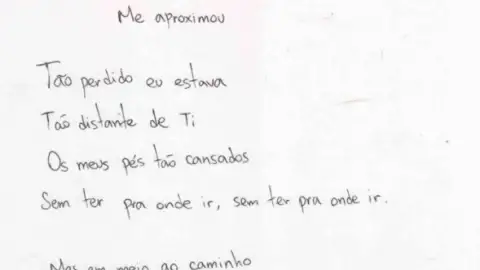 Me aproximou
Tão perdido eu estava
Tão distante de Ti
Os meus pés tão cansados
Sem ter pra onde ir, sem ter pra onde ir.
Mas em meio ao caminho